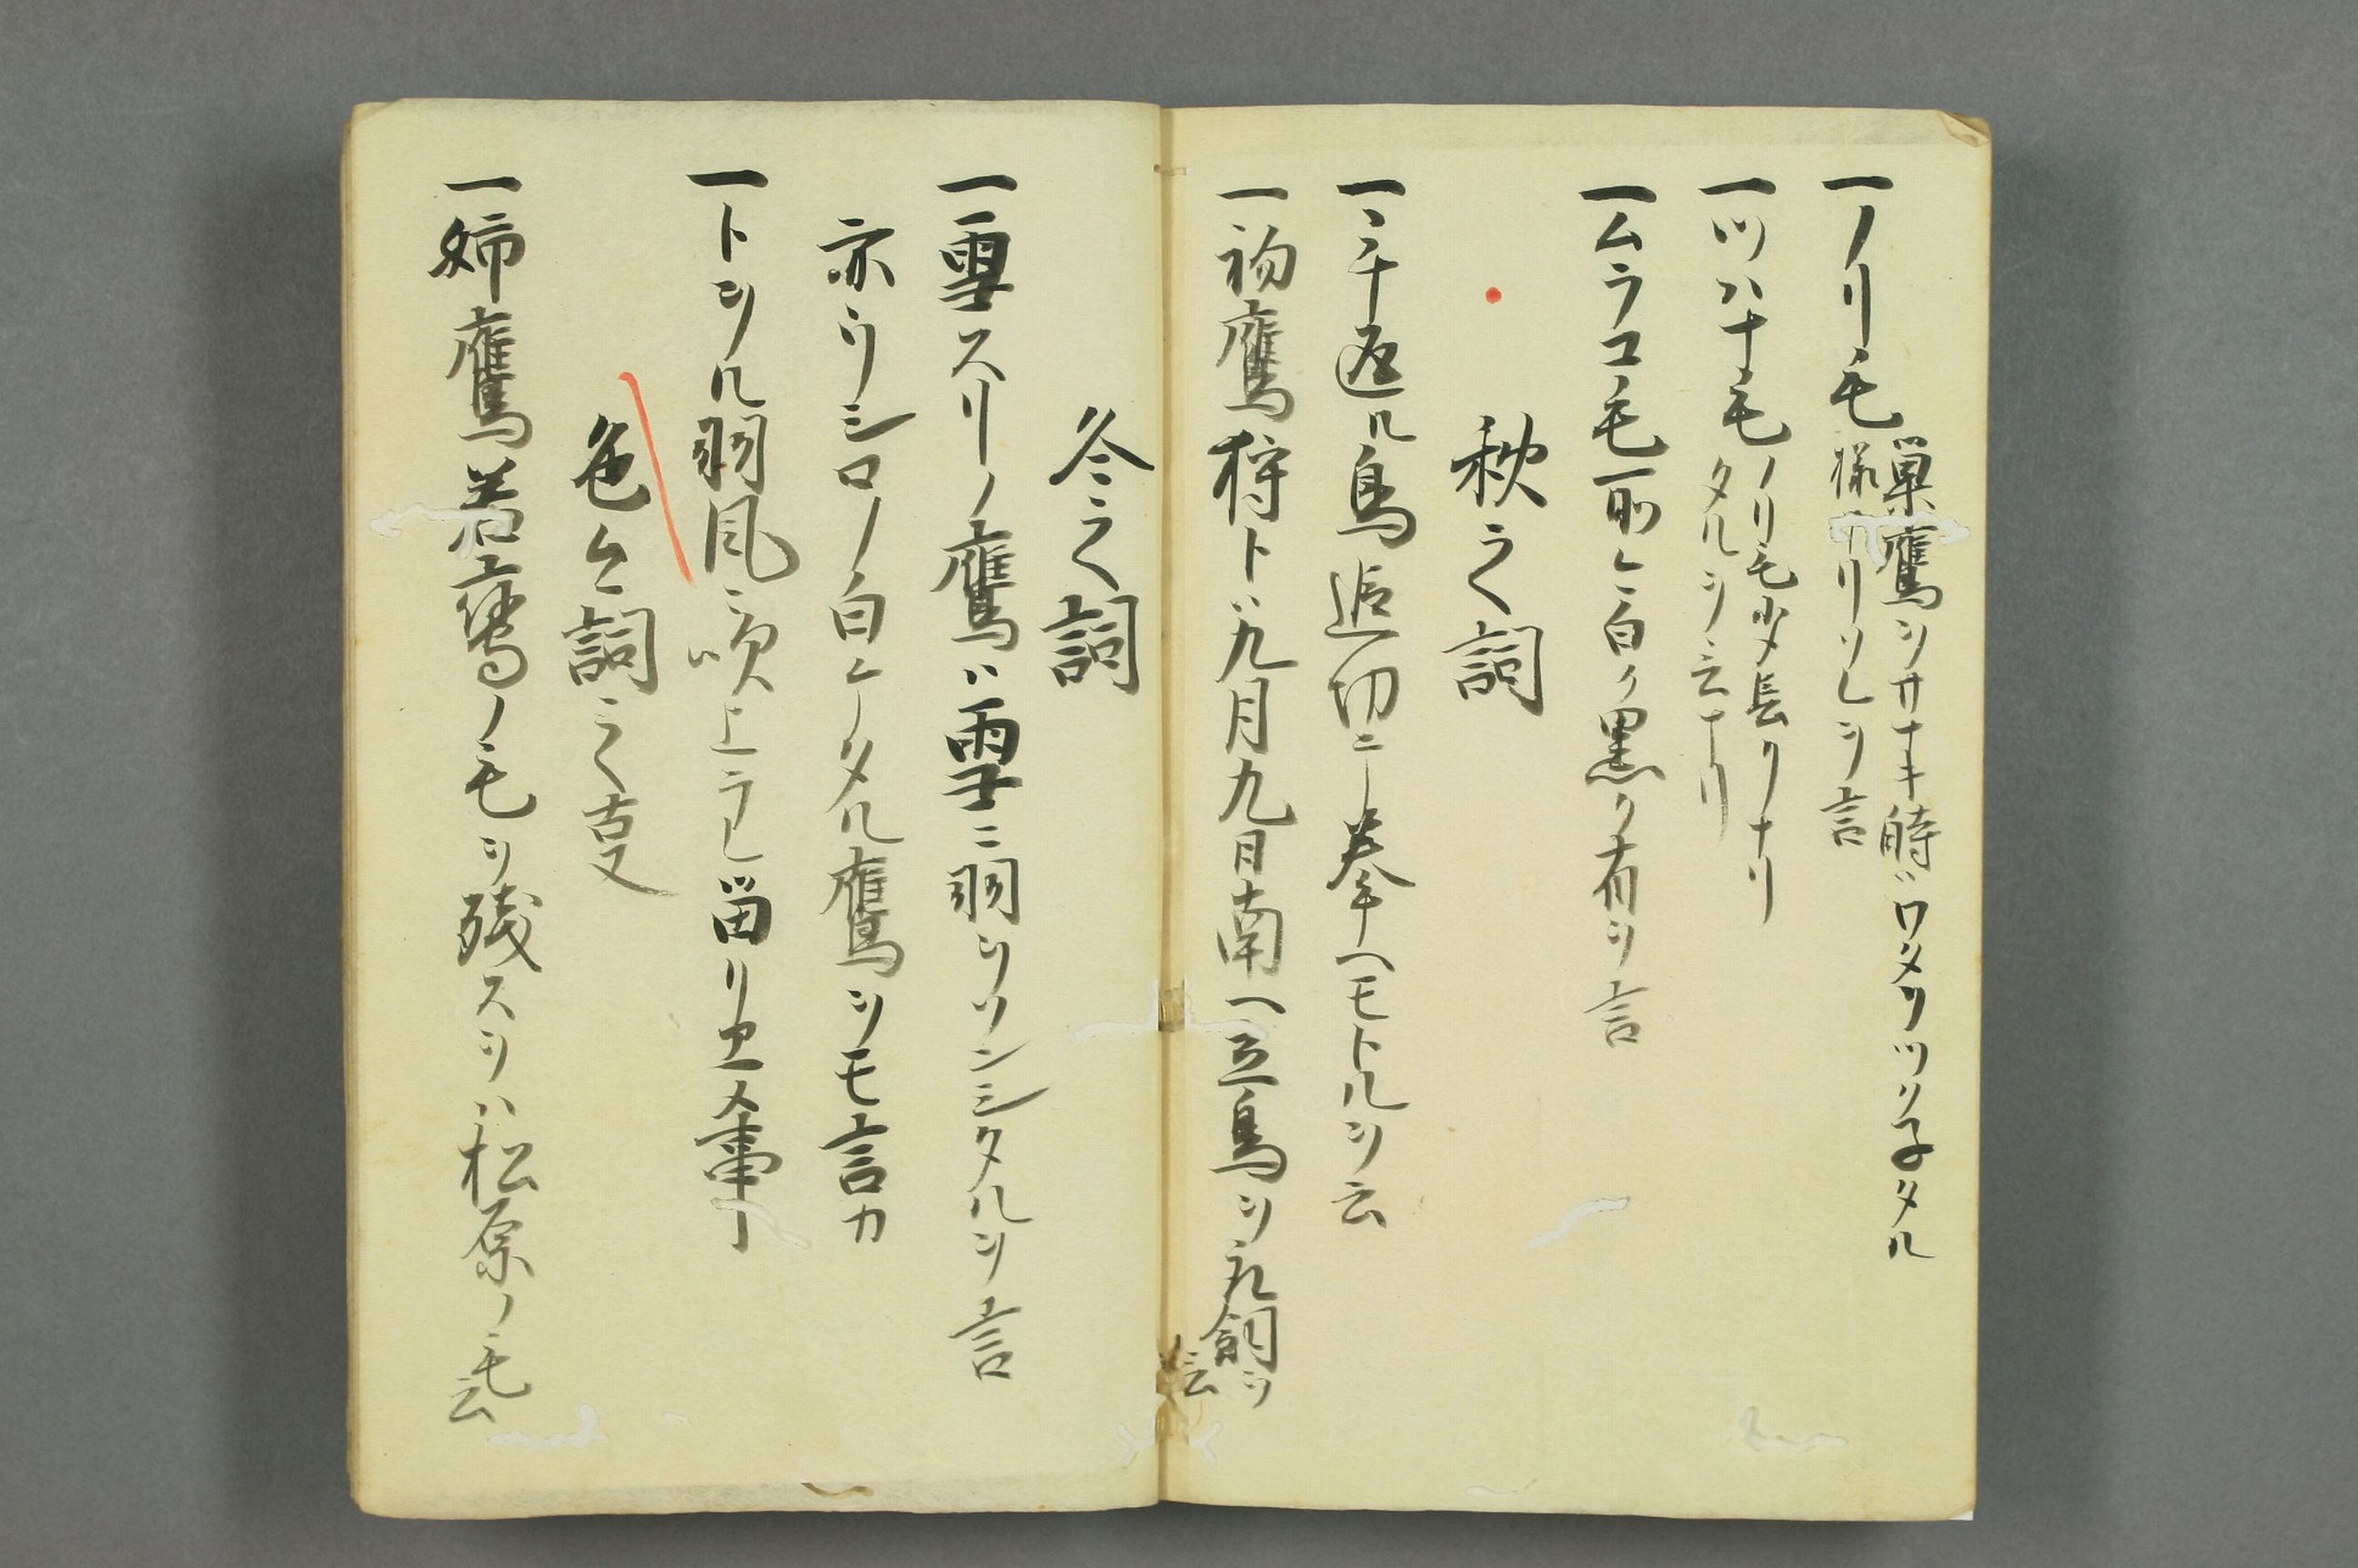 一ノリ毛
巣鷹ヲサナキ時ワタヲツリ子タル
様ナリソレヲ言
一ツハナ毛
ノリ毛少メ長クナリ
タルヲ云ナリ
一ムラコ毛所々白ク黒ク有ヲ言
秋之詞
一ミチ返ル鳥追切テ拳ヘモトルヲ云
一初鷹狩トハ九月九日南ヘ立鳥ヲ礼飼ヲ
云
冬之詞
一雪スリノ鷹ハ雪ニ羽ヲソンシタルヲ言
亦ウシロノ白ケタル鷹ヲモ言カ
一トツル羽風ニ吹上ラレ留リ
色々詞之支
一婦鷹若鷹ノ毛ヲ残スヲハ松原ノ毛云